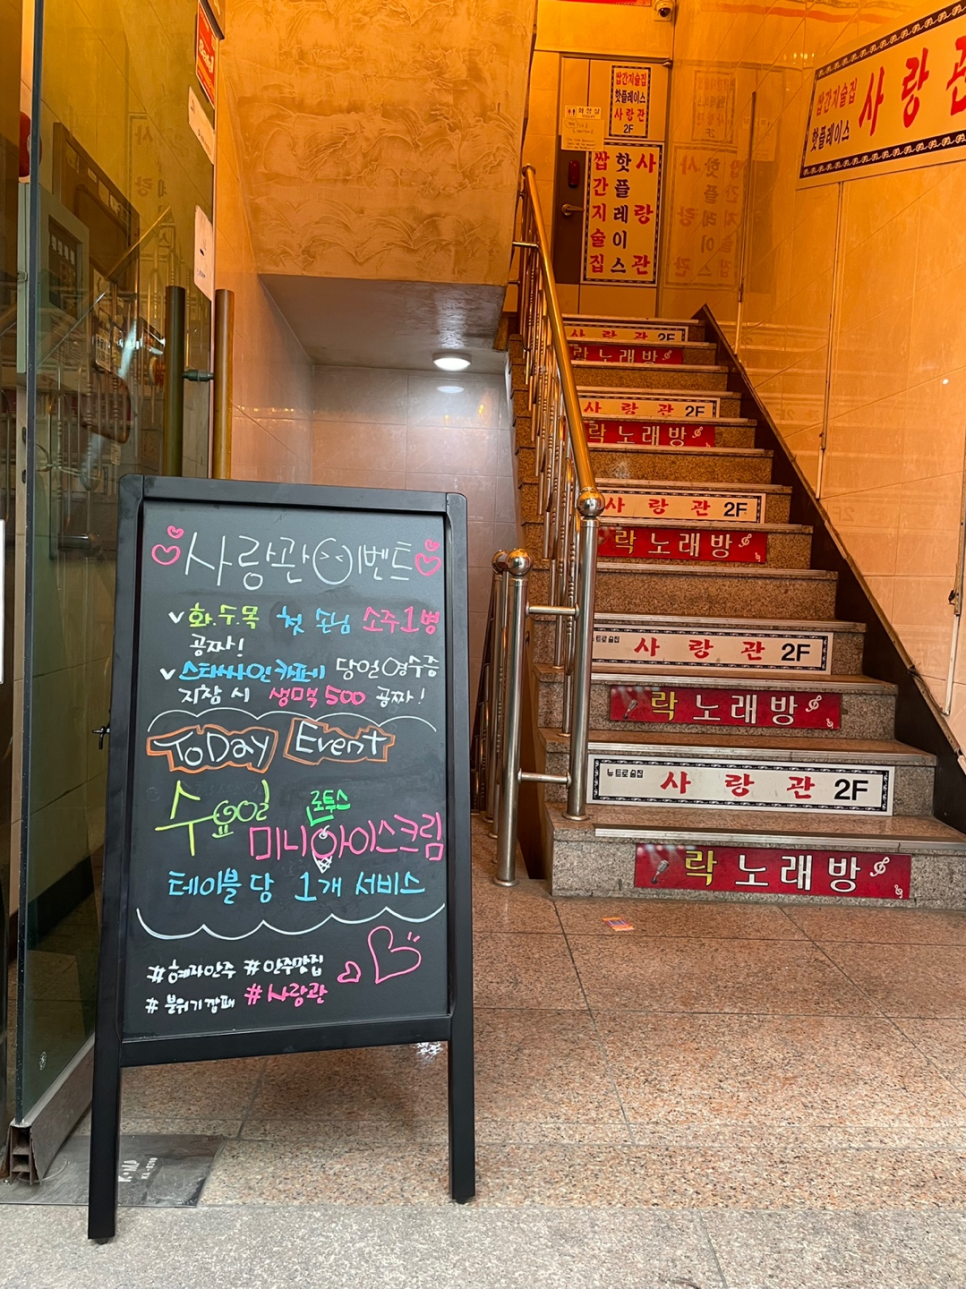 사랑관 이벤트
화.수.목 첫 손님 소주1병
공짜!
스타싸인카페 당일영수증
지참 시 생맥 500 공짜!
ToDay Event
수요일
로투스
미니아이스크림
테이블 당 1개 서비스
#혜자안주 #안주맛집
#분위기깡패 #사랑관
쌉간지술집
핫플레이스
사랑관
2F
화장실
쌉간지술집
핫플레이스
사랑관
쌉간지술집
핫플레이스
사랑관
사랑관 2F
락노래방
사랑관 2F
락노래방
사랑관 2F
락노래방
뉴트로술집 사랑관 2F
락노래방
뉴트로술집 사랑관 2F
락노래방